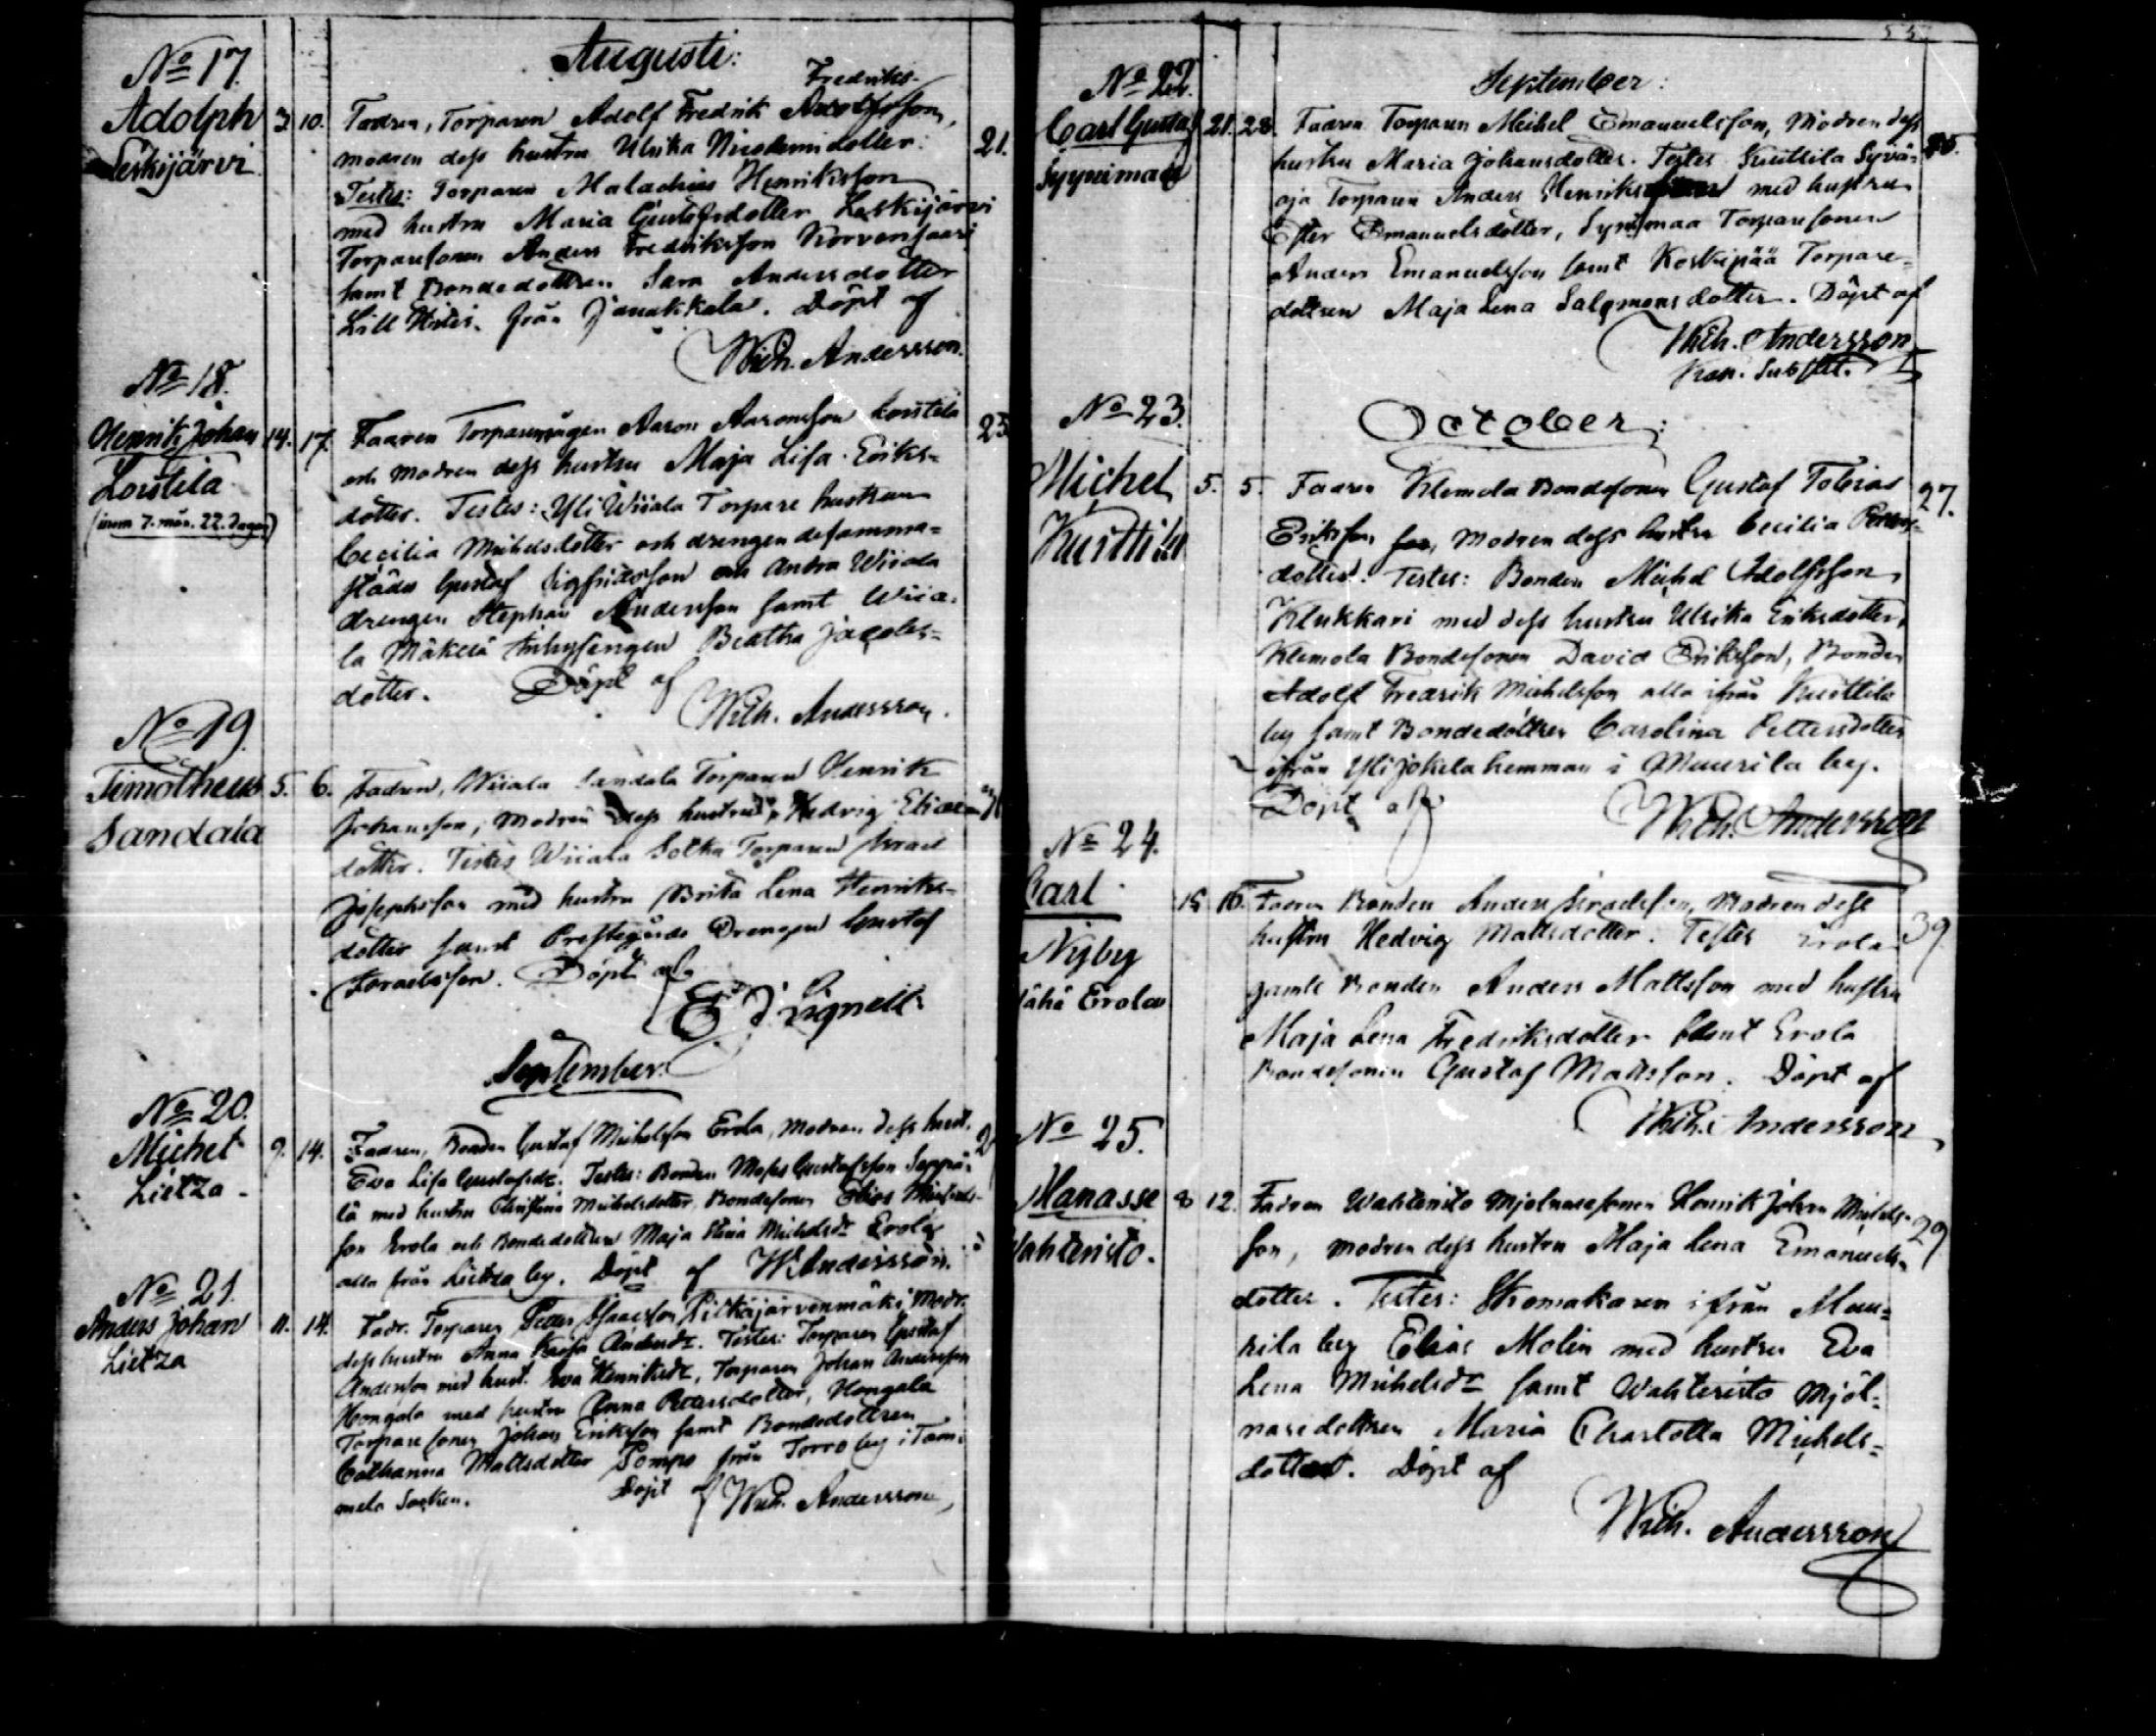 Augusti:
No 17.
Adolph 3 10.
Leskijärvi
Fredriks-
Fadren, Torparen Adolf Fredrik Adolfsson,
modren dess hustru Ulrika Nicodemidotter: 21.
Testes: Torparen Malachias Henriksson
med hustru Maria Gustafsdotter Leskijärvi
Torparesonen Anders Fredriksson Korvensaari
samt Bondedottren Sara Andersdotter
Lill Hiitis. från Janakkala. Döpt af
Wilh. Andersson.
No 18.
Henrik Johan 14. 17.
Loistila
(inom 7. mån. 22. dagar)
Fadren Torparemågen Aaron Aaronsson Loistila 25
och modren dess hustru Maja Lisa Eriks=
dotter. Testes: Yli Wiiala Torpare hustrun
Cecilia Michelsdotter och drengen desamma=
städes Gustaf Sigfridsson och Andra Wiiala
drengen Stephan Andersson samt Wiia=
la Mäkelä Inhysingen Beatha Jacobs=
dotter. Döpt af
Wilh. Andersson.
No 19.
Timotheus 5. 6.
Sandala
Fadren, Wiiala Sandala Torparen Henrik
Johansson, Modren dess hustru Hedvig Elia
dotter. Testes Wiiala Torparen Israel
Josephsson med hustru Brita Lena Henriks=
dotter samt Prestegårds Drengen Gustaf
Israelsson. Döpt af
Lignell.
September.
No 20.
Michel 9. 14.
Lietza
Fadren, Bonden Gustaf Michelsson Erola, modren dess hust.
Eva Lisa Gustafsdr. Testes: Bonden Moses Gustafsson Seppä=
lä med hustru Christina Michelsdotter, Bondesonen Elias Michels-
son Erola och Bondedottren Maja Stina Michelsdr Erola
alla från Lietza by. Döpt af W. Andersson.
No 21.
Anders Johan 11. 14.
Lietza
Fadr. Torparen Isaacsson Pitkäjärvenmäki, Modr.
dess hustru Anna Andersdr. Testes: Torparen Gustaf
Andersson med hust. Eva Henriksdr, Torparen Johan Andersson
Hongala med hustru Anna Petersdotter, Hongala
Torparesonen Johan Eriksson samt Bondedottren
Catharina Mattsdotter Sompo från Torro by i Tam=
mela Socken. Döpt af Wilh. Andersson,
September:
No 22.
Carl Gustaf 21. 28.
Syynimaa
Fadren Torparen Michel Emanuelsson, Modren dess
hustru Maria Johansdotter. Testes Kuuttila Syvä=
oja Torparen Anders med hustru
Ester Emanuelsdotter, Synimaa Torparesonen
Anders Emanuelsson samt Koskipää Torpare=
dottren Maja Lena Salomonsdotter. Döpt af
Wilh. Andersson
Kap. Subst.
October:
No 23.
Michel 5. 5.
Kuuttila
Fadren Klemola Bondesonen Gustaf Tobias 27.
Eriksson, Modren dess hustru Cecilia
dotter. Testes: Bonden Michel Adolfsson
Klukkari med dess hustru Ulrika Eriksdotter,
Klemola Bondesonen David Eriksson, Bonden
Adolf Fredrik Michelsson alla ifrån Kuuttila
by samt Bondedottren Carolina Pettersdotter
ifrån Yli Jokela hemman i Maurila by.
Döpt af
Wilh. Andersson
No 24.
Carl 15 16.
Nyby
Vähä Erola
Fadren Bonden Anders Israelsson, Modren dess
hustru Hedvig Mattsdotter. Testes Erola 39
gamle Bonden Anders Mattsson med hustru
Maja Lena Fredriksdotter samt Erola
Bondesonen Gustaf Mattsson. Döpt af
Wilh. Andersson
No 25.
Manasse 8 12.
Wahteristo.
Fadren Wahteristo Mjölnaresonen Henrik Johan Michels=
son, modren dess hustru Maja Lena Emanuels= 29
dotter. Testes: Skomakaren ifrån Mau=
rila by Elias Molin med hustru Eva
Lena Michelsdr samt Wahteristo Mjöl=
naredottren Maria Charlotta Michels=
dotter. Döpt af
Wilh. Andersson